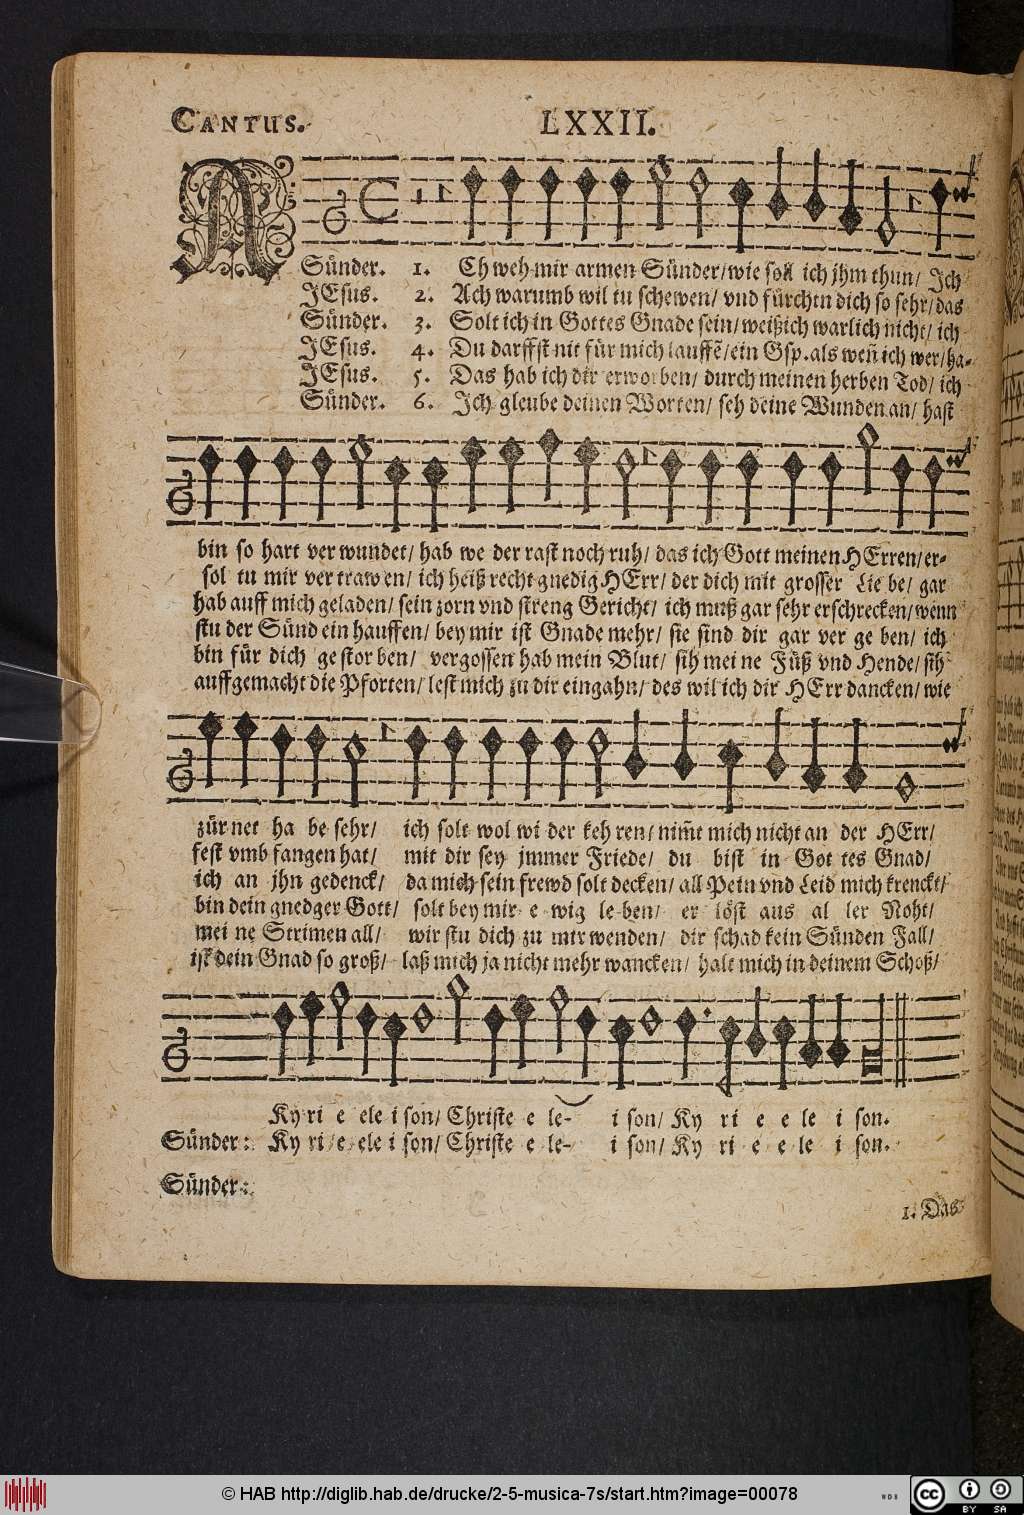 CANTUS.
LXXII.
A
Sünder. 1. Ch weh mir armen Sünder/ wie soll ich jhm thun/ Jch
JEsus. 2. Ach warumb wil tu schewen/ vnd fürchtn dich so sehr/ das
Sünder. 3. Solt ich in Gottes Gnade sein/ weiß ich warlich nicht/ ich
JEsus. 4. Du darffst nit für mich lauffẽ/ ein Gsp. als weñ ich wer/ ha-
JEsus. 5. Das hab ich dir erworben/ durch meinen herben Tod/ ich
Sünder. 6. Jch gleube deinen Worten/ seh deine Wunden an/ hast
bin so hart ver wundet/ hab we der rast noch ruh/ das ich Gott meinen HErren/ er-
sol tu mir ver traw en/ ich heiß recht gnedig HErr/ der dich mit grosser Lie be/ gar
hab auff mich geladen/ sein zorn vnd streng Gericht/ ich muß gar sehr erschrecken/ wenn
stu der Sünd ein hauffen/ bey mir ist Gnade mehr/ sie sind dir gar ver ge ben/ ich
bin für dich ge stor ben/ vergossen hab mein Blut/ sih mei ne Füß vnd Hende/ sih
auffgemacht die Pforten/ lest mich zu dir eingahn/ des wil ich dir HErr dancken/ wie
zür net ha be sehr/ ich solt wol wi der keh ren/ nim̃t mich nicht an der HErr/
fest vmb fangen hat/ mit dir sey jmmer Friede/ du bist in Got tes Gnad/
ich an jhn gedenck/ da mich sein frewd solt decken/ all Pein vnd Leid mich krenckt/
bin dein gnedger Gott/ solt bey mir e wig le ben/ er löst aus al ler Noht/
mei ne Strimen all/ wir stu dich zu mir wenden/ dir schad kein Sünden Fall/
ist dein Gnad so groß/ laß mich ja nicht mehr wancken/ halt mich in deinem Schoß/
Ky ri e ele i son/ Christe e le- i son/ Ky ri e e le i son.
Sünder: Ky ri e ele i son/ Christe e le- i son/ Ky ri e e le i son.
Sünder:
1. Das
© HAB http://diglib.hab.de/drucke/2-5-musica-7s/start.htm?image=00078
WDB
cc
BY SA